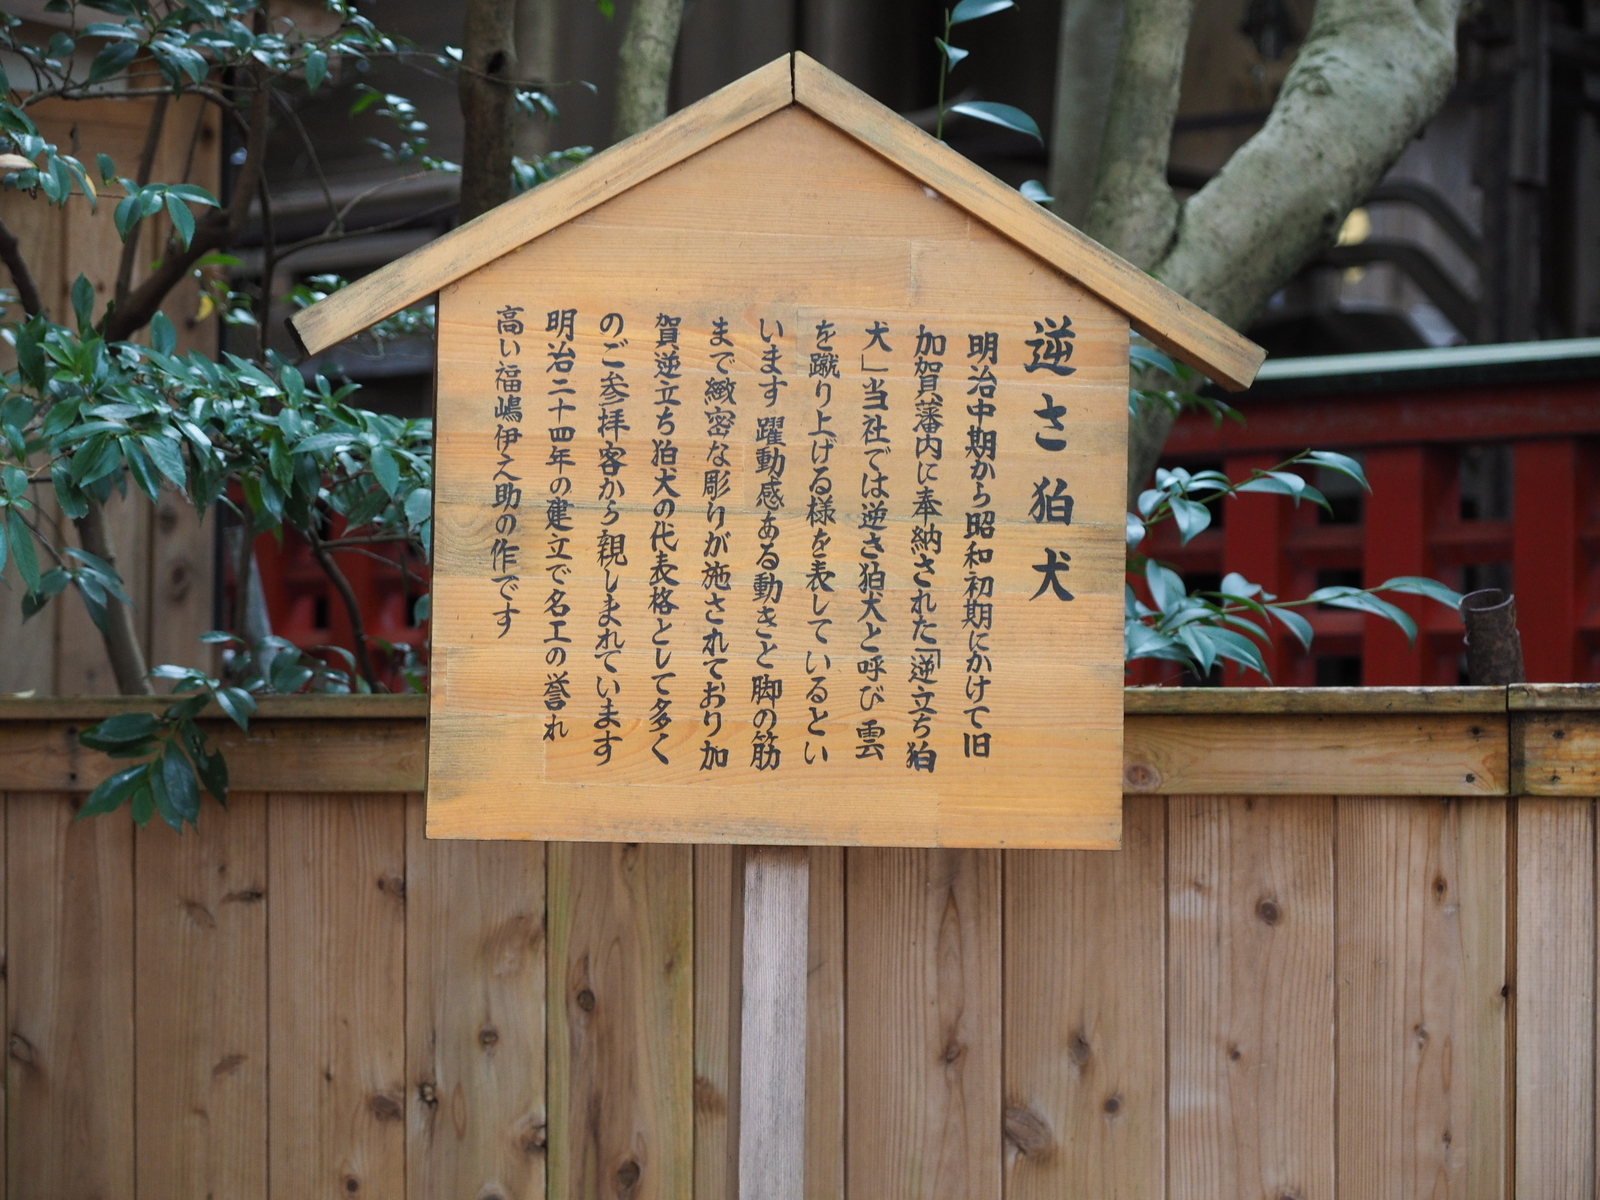 逆さ狛犬
明治中期から昭和初期にかけて旧
加加賀藩内に奉納された「逆立ち狛
犬」当社では逆さ狛犬と呼び雲
を蹴り上げる様を表しているとい
います 躍動感ある動きと脚の筋
まで緻密な彫りが施されており加
賀逆立ち狛犬の代表格として多く
のご参拝客から親しまれています
明治二十四年の建立で名工の誉れ
高い福嶋伊之助の作です